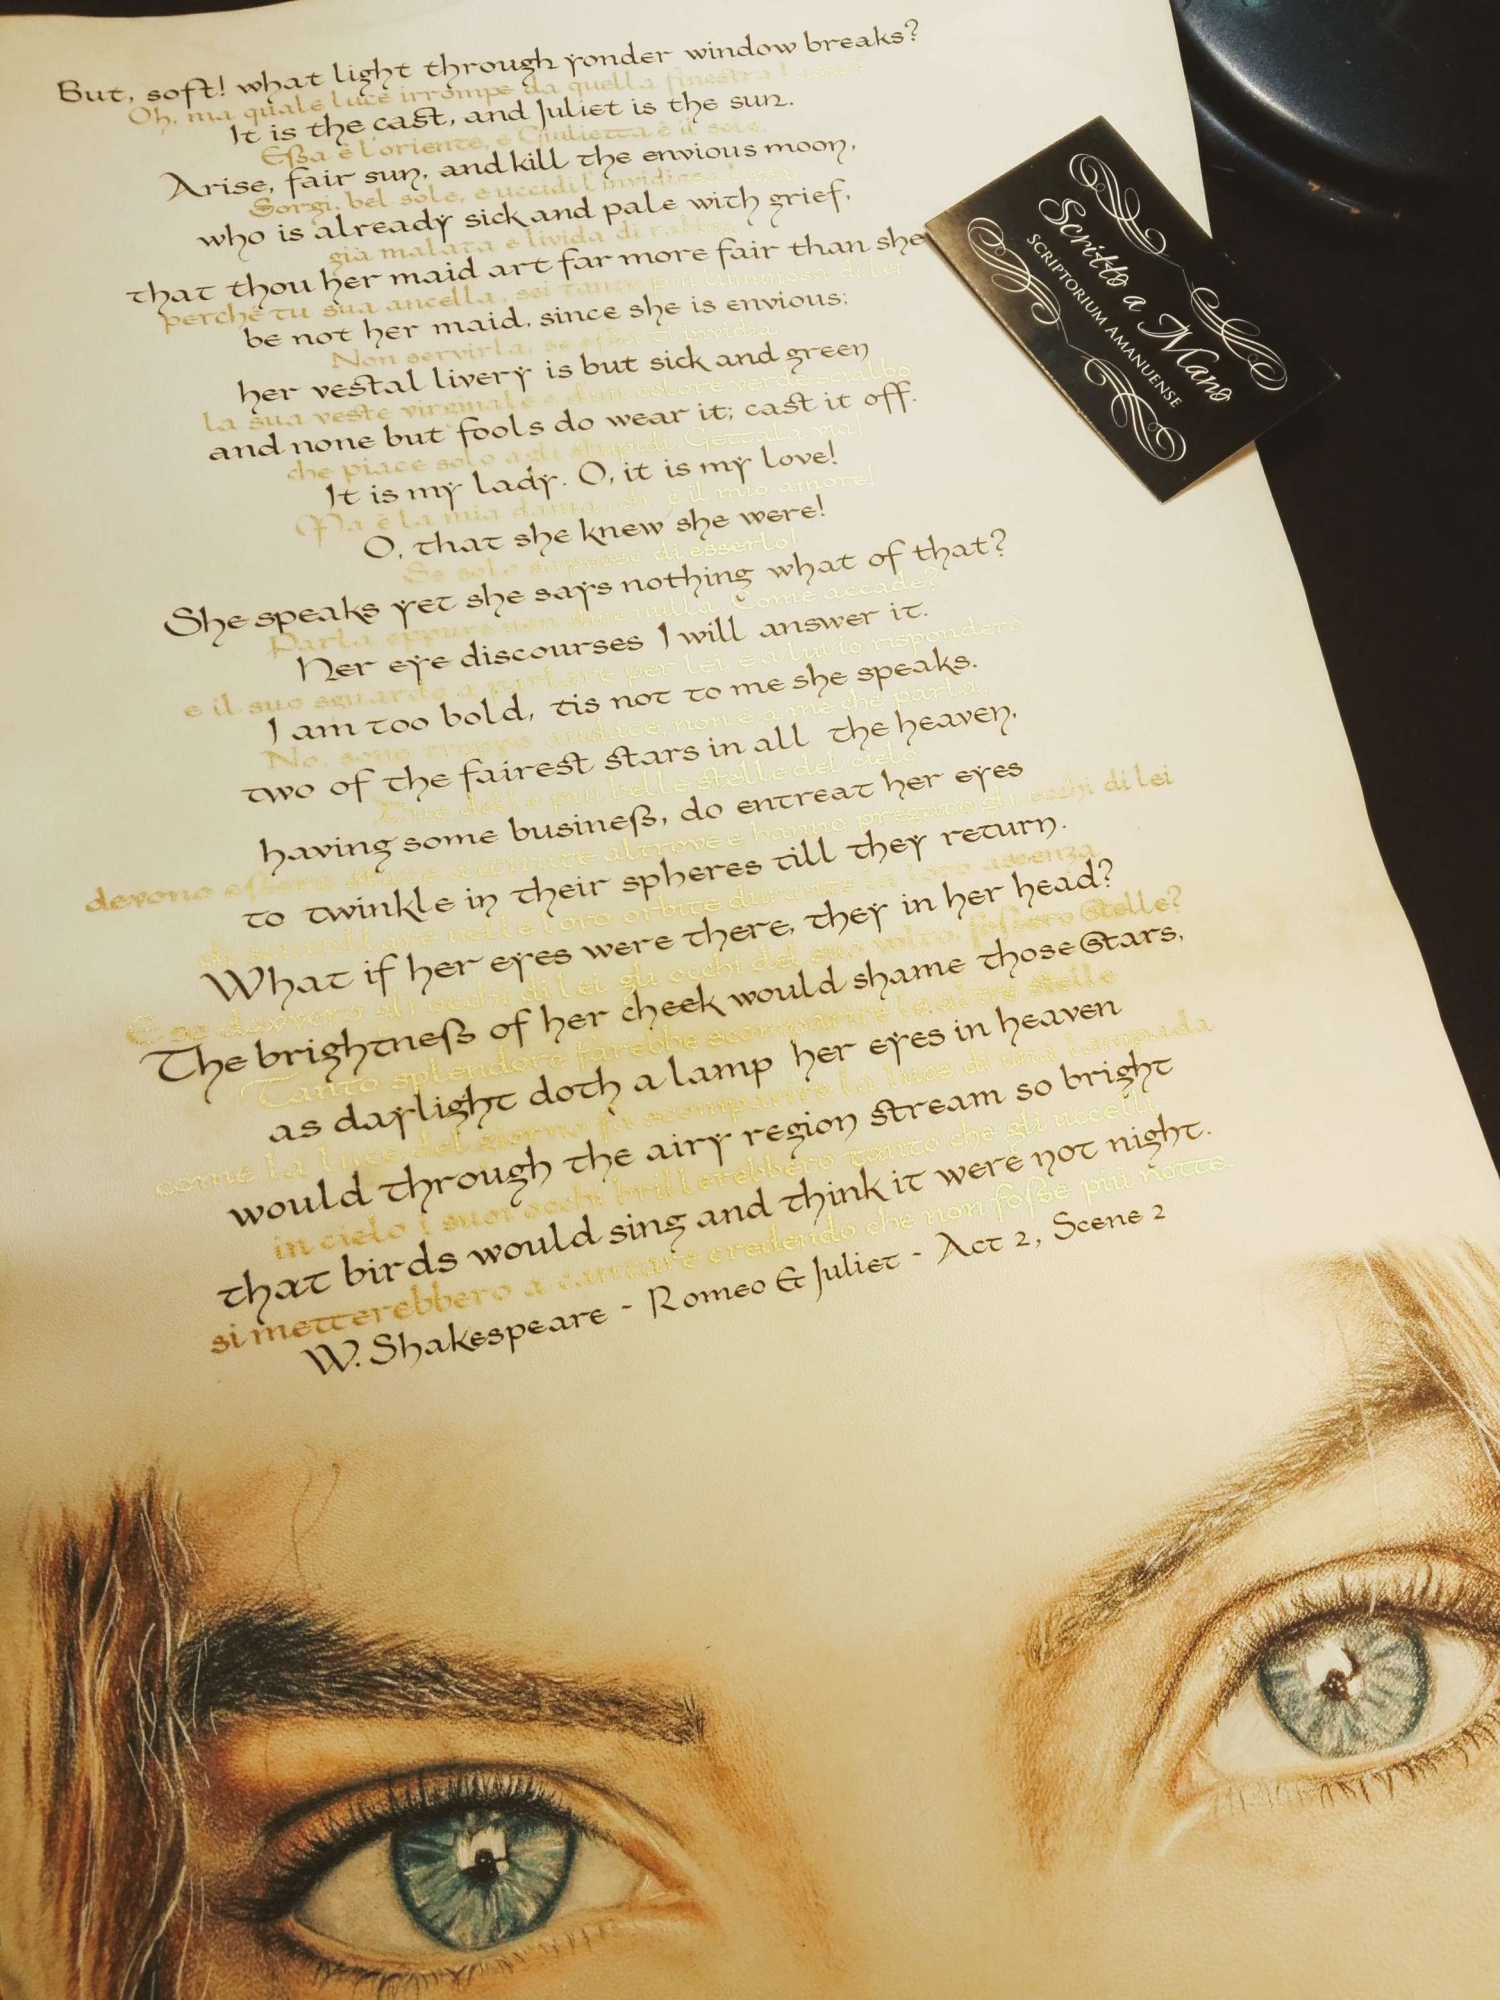 But, soft! what light through yonder window breaks?
Oh, ma quale luce irrompe da quella finestra
It is the east, and Juliet is the sun.
Essa è l'oriente, e Giulietta è il sole.
Arise, fair sun, and kill the envious moon,
Sorgi, bel sole, e uccidi l'invidiosa luna
who is already sick and pale with grief,
già malata e livida di rabbia
that thou her maid art far more fair than she
perché tu sua ancella, sei tanto più luminosa di lei
be not her maid, since she is envious;
Non servirla, se essa ti invidia
her vestal livery is but sick and green
la sua veste virginale è d'un colore verde scialbo
and none but fools do wear it; cast it off.
che piace solo agli stupidi. Gettala via!
It is my lady. O, it is my love!
Ma è la mia dama, oh, è il mio amore!
O, that she knew she were!
Se solo sapesse di esserlo!
She speaks yet she says nothing what of that?
Parla eppure non dice nulla. Come accade?
Her eye discourses I will answer it.
e il suo sguardo a parlare per lei e a lui io risponderò
I am too bold, tis not to me she speaks.
No, sono troppo audace, non è a me che parla.
two of the fairest stars in all the heaven,
Due delle più belle stelle del cielo
having some business, do entreat her eyes
devono essere state attirate altrove e hanno pregato gli occhi di lei
to twinkle in their spheres till they return.
di scintillare nelle loro orbite durante la loro assenza.
What if her eyes were there, they in her head?
E se davvero gli occhi di lei gli occhi del suo volto, fossero stelle?
The brightness of her cheek would shame those stars,
Tanto splendore farebbe scomparire le altre stelle
as daylight doth a lamp her eyes in heaven
come la luce del giorno fa scomparire la luce di una lampada
would through the airy region stream so bright
in cielo i suoi occhi brillerebbero tanto che gli uccelli
that birds would sing and think it were not night.
si metterebbero a cantare credendo che non fosse più notte.
W. Shakespeare - Romeo & Juliet - Act 2, Scene 2
Scritto a Mano
SCRIPTORIUM AMANUENSE